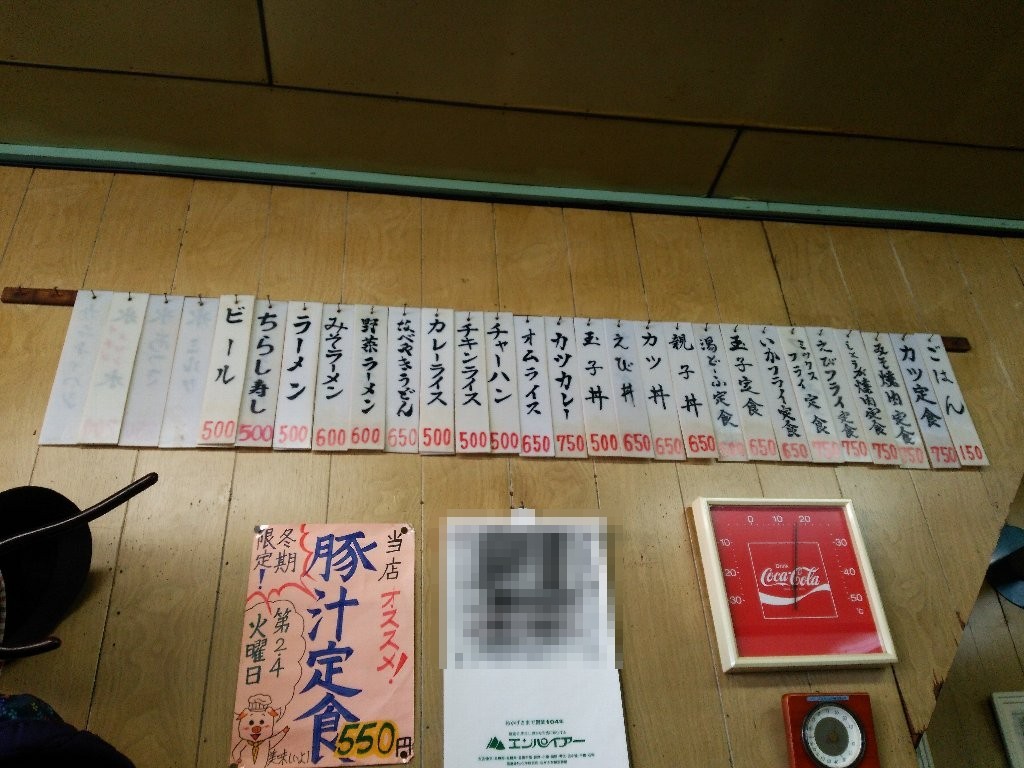 ごはん 150
カツ定食 750
みそ焼肉定食 750
しょうが焼肉定食 750
えびフライ定食 750
ミックスフライ定食 750
いかフライ定食 650
玉子定食 650
湯どうふ定食
親子丼 650
カツ丼 650
えび丼 650
玉子丼 500
カツカレー 750
オムライス 650
チャーハン 500
チキンライス 500
カレーライス 500
なべやきうどん 650
野菜ラーメン 600
みそラーメン 600
ラーメン 500
ちらし寿し 500
ビール 500
当店
オススメ!
豚汁定食
550円
冬期
限定!
第24
火曜日
美味いよ!
エンパイアー
0 10 20
10 20 30
30 40 50
℃
Drink
Coca-Cola